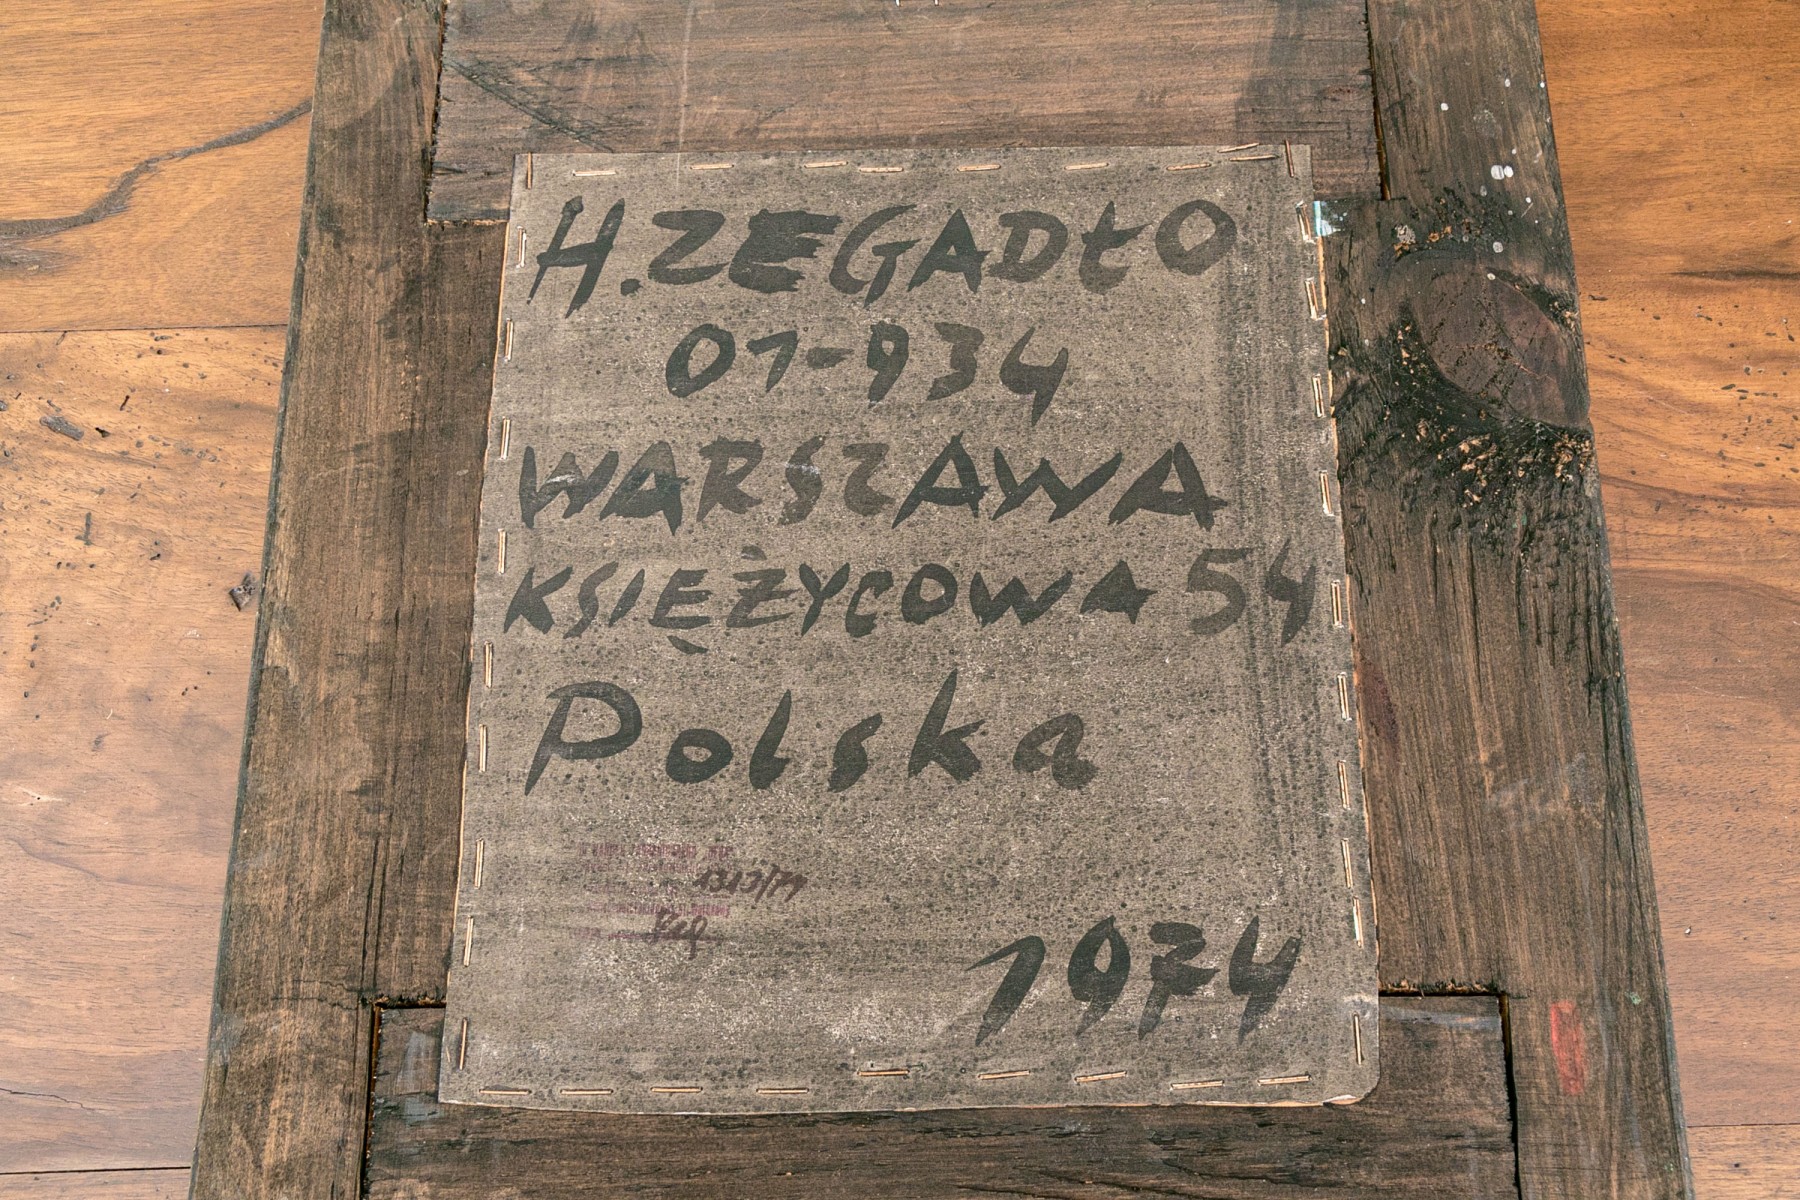 H. ZEGADŁO
01-934
WARSZAWA
KSIĘŻYCOWA 54
Polska
1313/74
1974